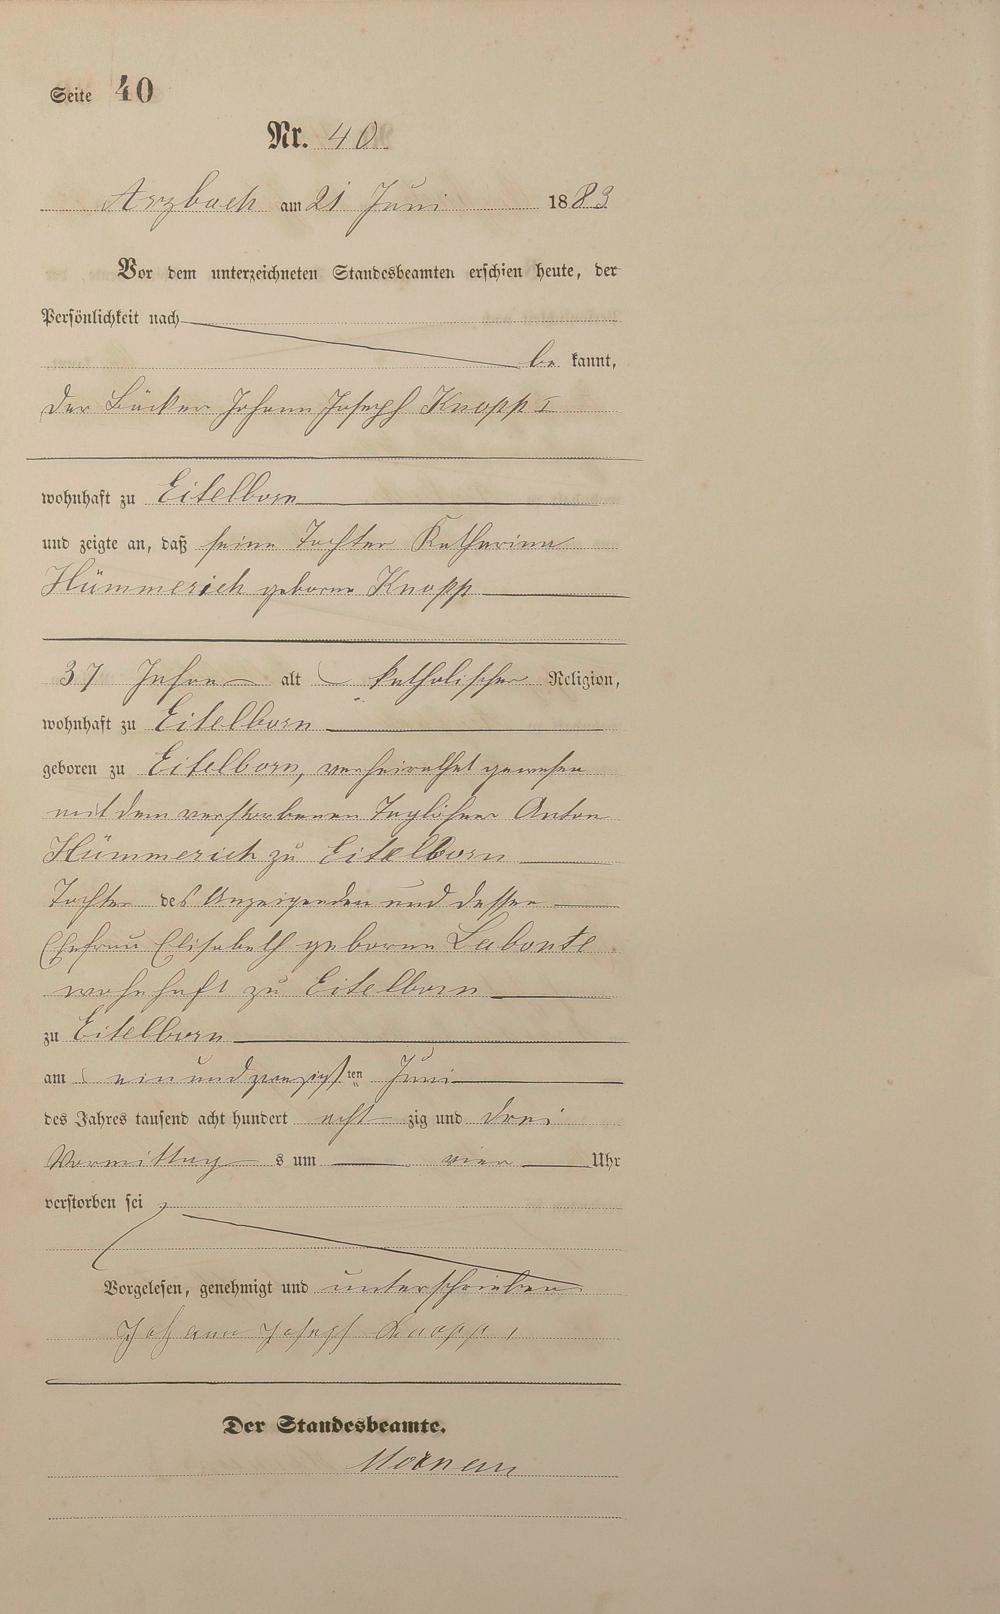 Seite 40
Nr. 40
Arzbach am 21 Juni 1883
Vor dem unterzeichneten Standesbeamten erschien heute, der
Persönlichkeit nach
be kannt,
der Bäcker Johann Joseph Knopp I
wohnhaft zu Eitelborn
und zeigte an, daß seine Tochter Katharina
Hümmerich geborne Knopp
37 Jahre alt katholischer Religion,
wohnhaft zu Eitelborn
geboren zu Eitelborn, verheirathet gewesen
mit dem verstorbenen Taglöhner Anton
Hümmerich zu Eitelborn
Tochter des Anzeigenden und dessen
Ehefrau Elisabeth geborne Labonte
wohnhaft zu Eitelborn
zu Eitelborn
am einundzwanzigsten Juni
des Jahres tausend acht hundert acht zig und drei
Vormittag s um vier Uhr
verstorben sei
Vorgelesen, genehmigt und unterschrieben
Johann Joseph Knopp I
Der Standesbeamte.